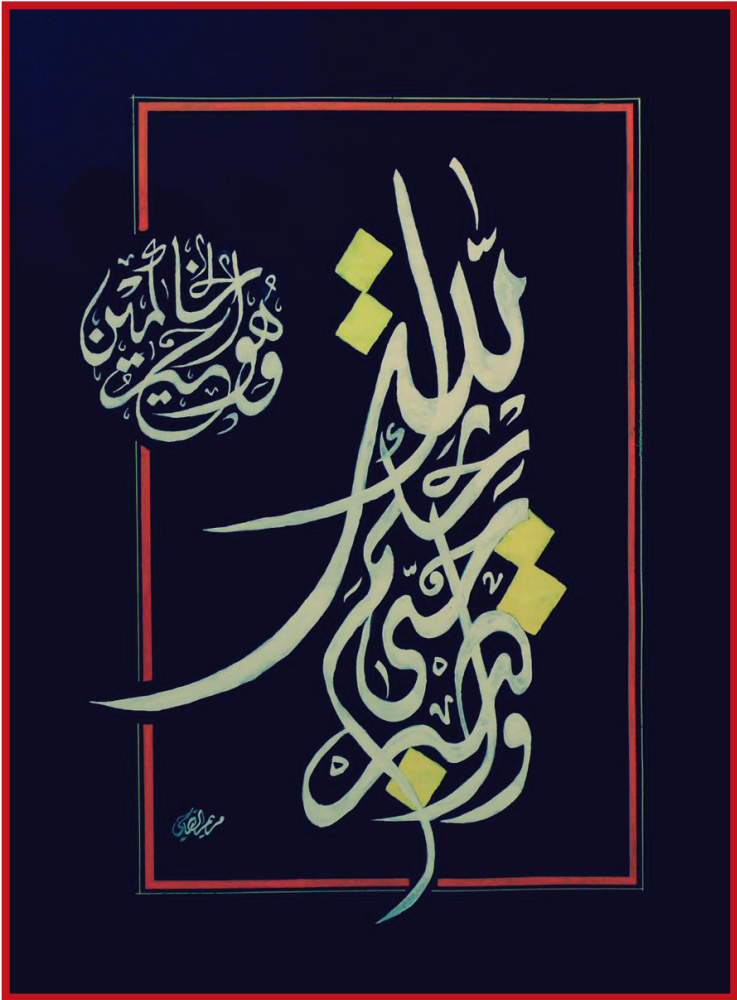 واصبر حتى يحكم الله
وهو خير الحاكمين